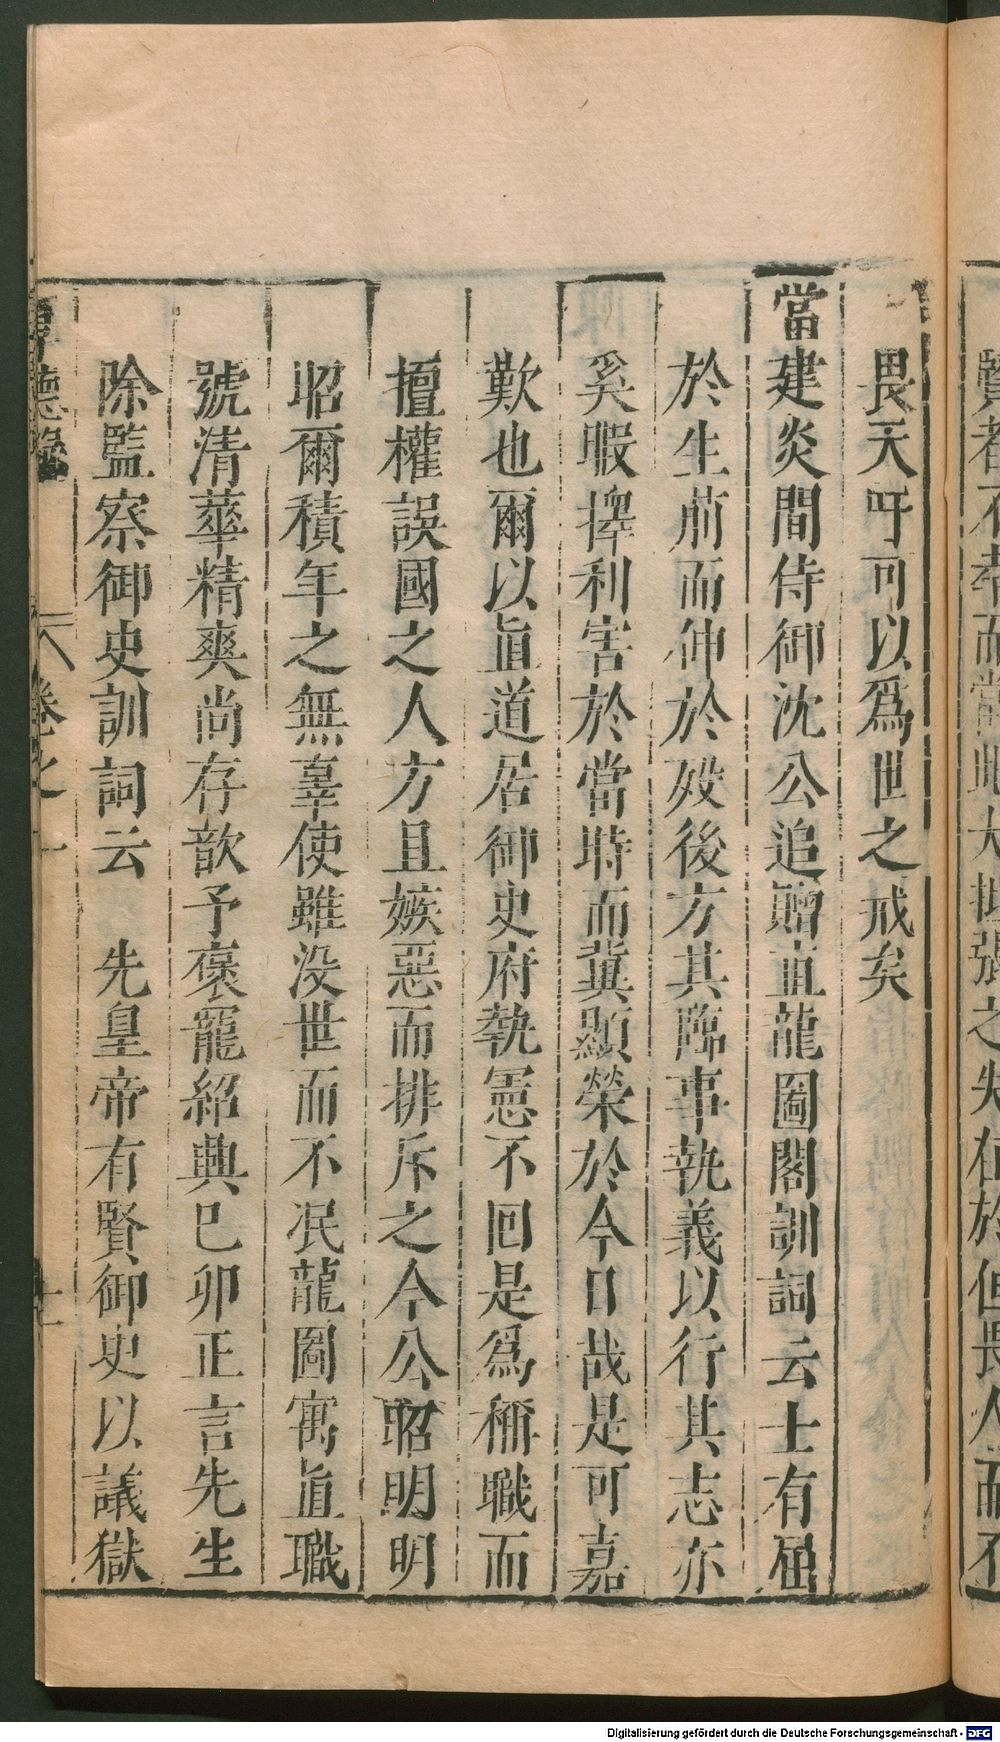 畏天吁可以爲世之戒矣
當建炎間侍御沈公追贈直龍圖閣訓詞云士有屈
於生前而伸於歿後方其臨事執義以行其志亦
奚暇擇利害於當時而冀顯榮於今日哉是可嘉
歎也爾以直道居御史府執憲不回是爲稱職而
擅權誤國之人方且嫉惡而排斥之今公昭明明
昭爾積年之無辜使雖没世而不泯龍圖寓直職
號清華精爽尚存歆予褒寵紹興己卯正言先生
除監察御史訓詞云　先皇帝有賢御史以議獄
德
卷之一
七
Digitalisierung gefördert durch die Deutsche Forschungsgemeinschaft - DFG